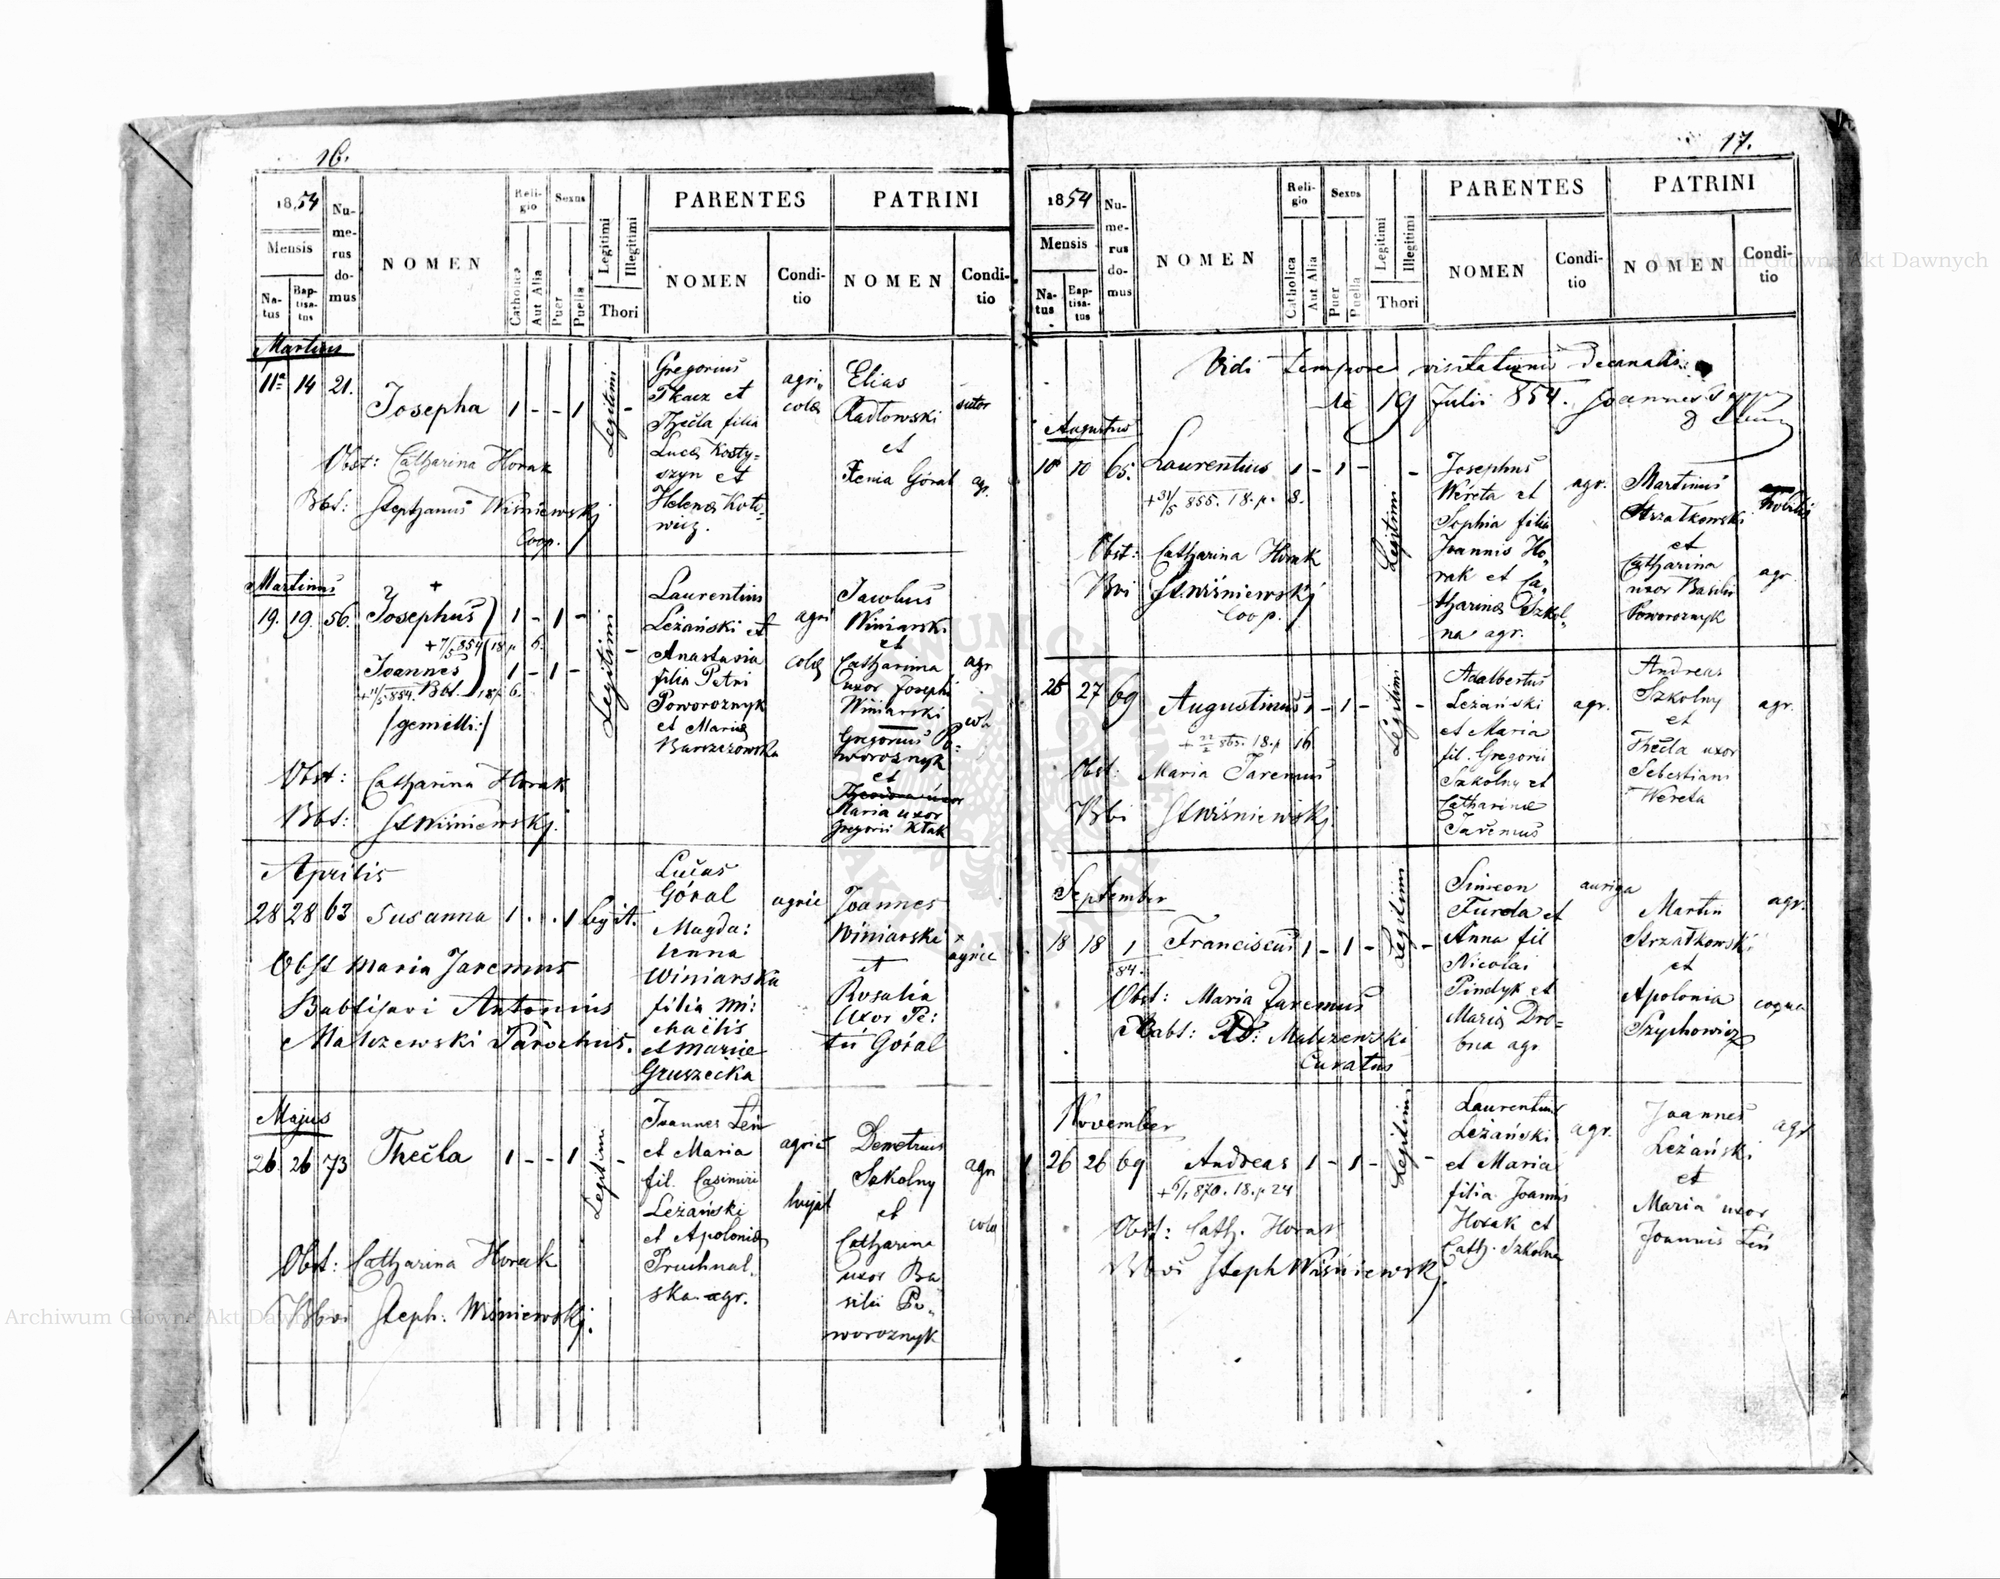 16.
1854
Mensis
Na-
tus
Bap-
tisa-
tus
Nu-
me-
rus
do-
mus
NOMEN
Reli-
gio
Catholica
Aut Alia
Sexus
Puer
Puella
Legitimi
Illegitimi
Thori
PARENTES
NOMEN
Condi-
tio
PATRINI
NOMEN
Condi-
tio
Martius
11a 14 21.
Josepha 1 - - 1
Legitimi -
Obst: Catharina Horak
Bbt: Stephanus Wiśniewsky
Coop.
Gregorius
Tkacz et
Thecla filia
Lucae Kosty-
szyn et
Helenae Koto-
wicz.
agri
colae
Elias
Radłowski
et
Xenia Górat
sutor
agr.
Martius
19. 19. 56.
Josephus 1 - 1 -
+ 7/5 854 18 p 6.
Joannes 1 - 1 -
+ 11/5 854. Bbt. 18 p 6.
/gemelli:/
Legitimi -
Obst: Catharina Horak
Bbt: St Wiśniewsky.
Laurentius
Leżański et
Anastasia
filia Petri
Poworoznyk
et Mariae
Barszczowska
agri
colae
Jacobus
Winiarski
et
Catharina
uxor Josephi
Winiarski
Gregorius Po-
woroznyk
et
Theodora uxor
Maria uxor
Gregorii Ktak
agr
col
Aprilis
28 28 63 Susanna 1 . . 1 legit.
Obst Maria Jaremus
Babtisavi Antonius
Malczewski Parochus.
Lucas
Góral
Magda:
lenna
Winiarska
filia Mi:
chaelis
et Mariae
Gruszecka
agric
Joannes
Winiarski
et
Rosalia
Uxor Pe:
tri Góral
x
agric
Majus
26 26 73 Thecla 1 - - 1
Legitimi -
Obst: Catharina Horak
Bbvi Steph: Wiśniewsky.
Joannes Leń
et Maria
fil. Casimiri
Leżański
et Apoloniae
Pruchnal-
ska agr.
agric
Demetrius
Szkolny
et
Catharina
uxor Ba
silii Po-
woroznyk
agri
cola
17.
1854
Mensis
Na-
tus
Bap-
tisa-
tus
Nu-
me-
rus
do-
mus
NOMEN
Reli-
gio
Catholica
Aut Alia
Sexus
Puer
Puella
Legitimi
Illegitimi
Thori
PARENTES
NOMEN
Condi-
tio
PATRINI
NOMEN
Condi-
tio
Vidi tempore visitationis decanalis
19 Julii 854. Joannes
Augustus
10 10 65. Laurentius 1 - 1 -
+ 31/5 855. 18. p. 8.
Legitimi -
Obst: Catharina Horak
Bbvi St. Wiśniewsky
Coop.
Josephus
Wereta et
Sophia filia
Joannis Ho-
rak et Ca-
tharinae Szkol-
na agr.
agr.
Martinus
Strzałkowski
et
Catharina
uxor Basilii
Poworoznyk
agr.
26 27 69 Augustinus 1 - 1 -
+ 22/2 865. 18. p 16
Legitimi -
Obst: Maria Jaremus
Bbvi St Wiśniewsky.
Adalbertus
Leżański
et Maria
fil. Gregorii
Szkolny et
Catharinae
Jaremus
agr.
Andreas
Szkolny
et
Thecla uxor
Sebestiani
Wereta
agr.
September
18 18 1 Franciscus 1 - 1 -
84.
Legitimi -
Obst: Maria Jaremus
Babt: Malczewski
Curatus
Simeon
Furda et
Anna fil
Nicolai
Pindyk et
Mariae Dro-
bna agr
auriga
Martin
Strzałkowski
et
Apolonia
Szychowicz
agr.
coqua
November
26 26 69 Andreas 1 - 1 -
+ 6/1 870. 18. p 24
Legitimi -
Obst: Cath. Horak
Bbvi Steph Wiśniewsky.
Laurentius
Leżański
et Maria
filia Joannis
Horak et
Cath. Szkolna
agr.
Joannes
Leżański
et
Maria uxor
Joannis Leń
agr
Archiwum Główne Akt Dawnych
Archiwum Główne Akt Dawnych